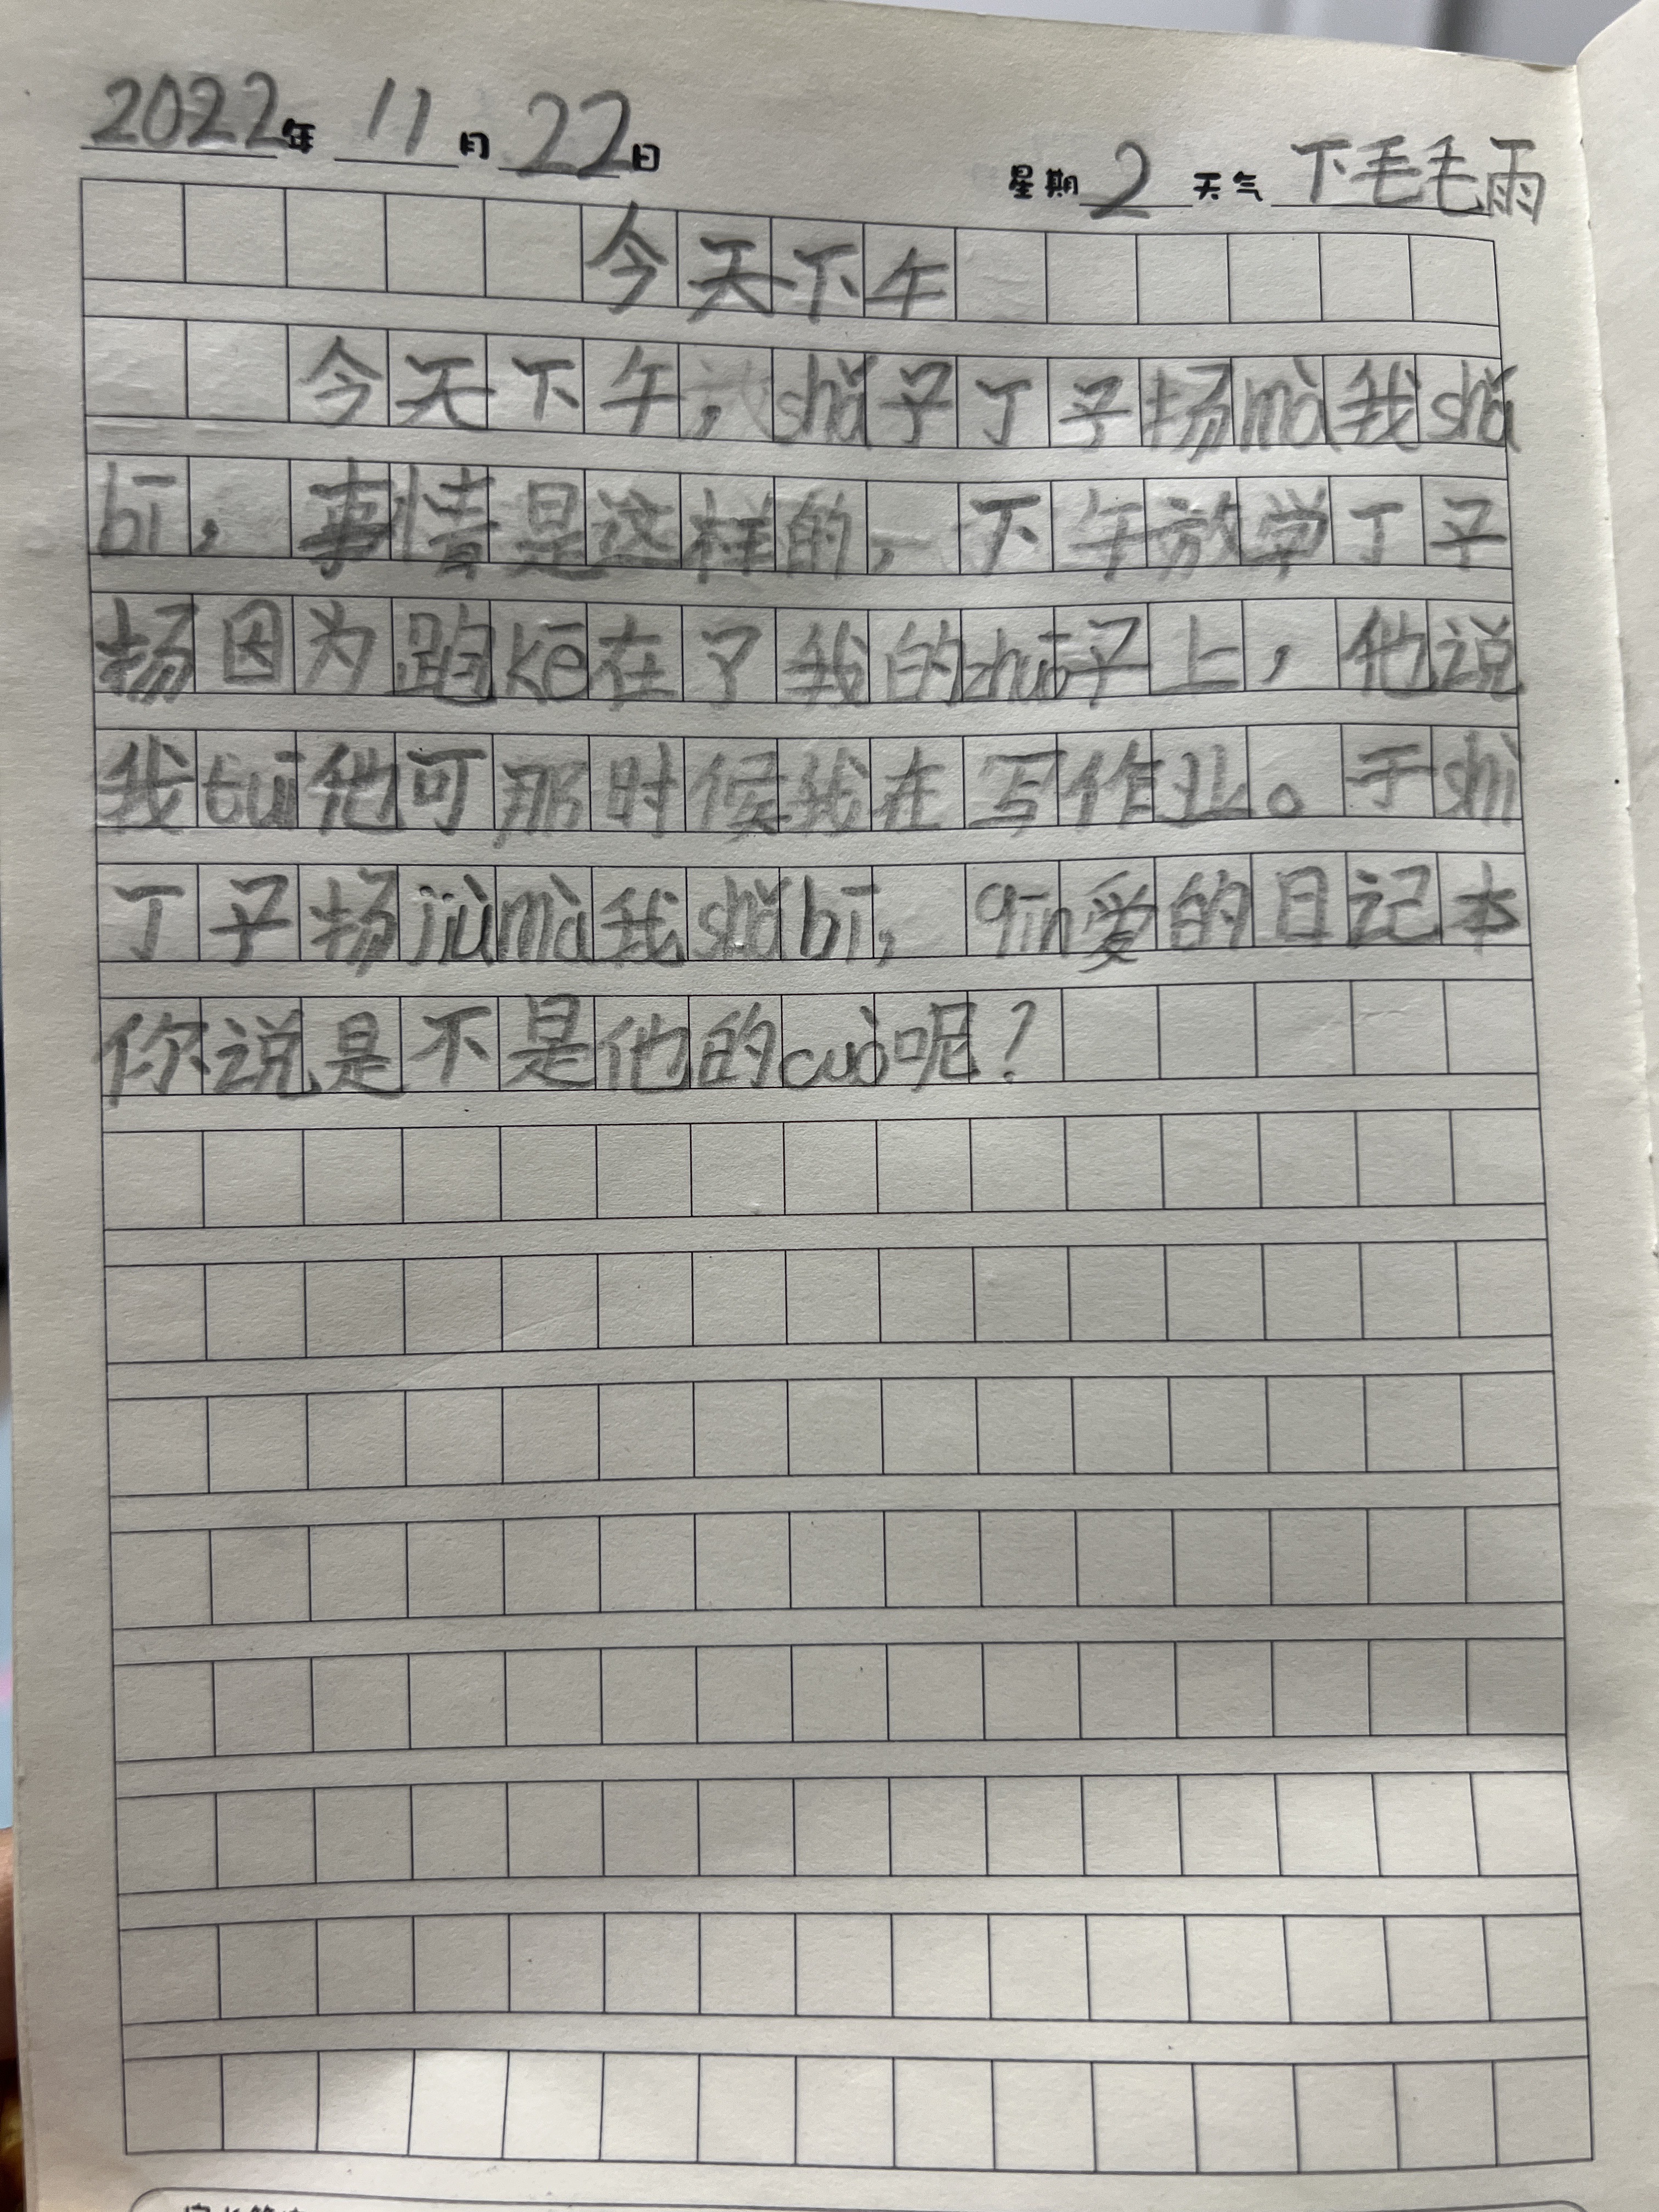 2022年 11月 22日 星期 2 天气 下毛毛雨
今天下午
今天下午，shǎ子丁子扬mà我shǎ
bī，事情是这样的，下午放学丁子
扬因为跑kē在了我的zhuō子上，他说
我tuī他可那时候我在写作业。于shì
丁子扬jiùmà我shǎbī，qīn爱的日记本
你说是不是他的cuò呢？